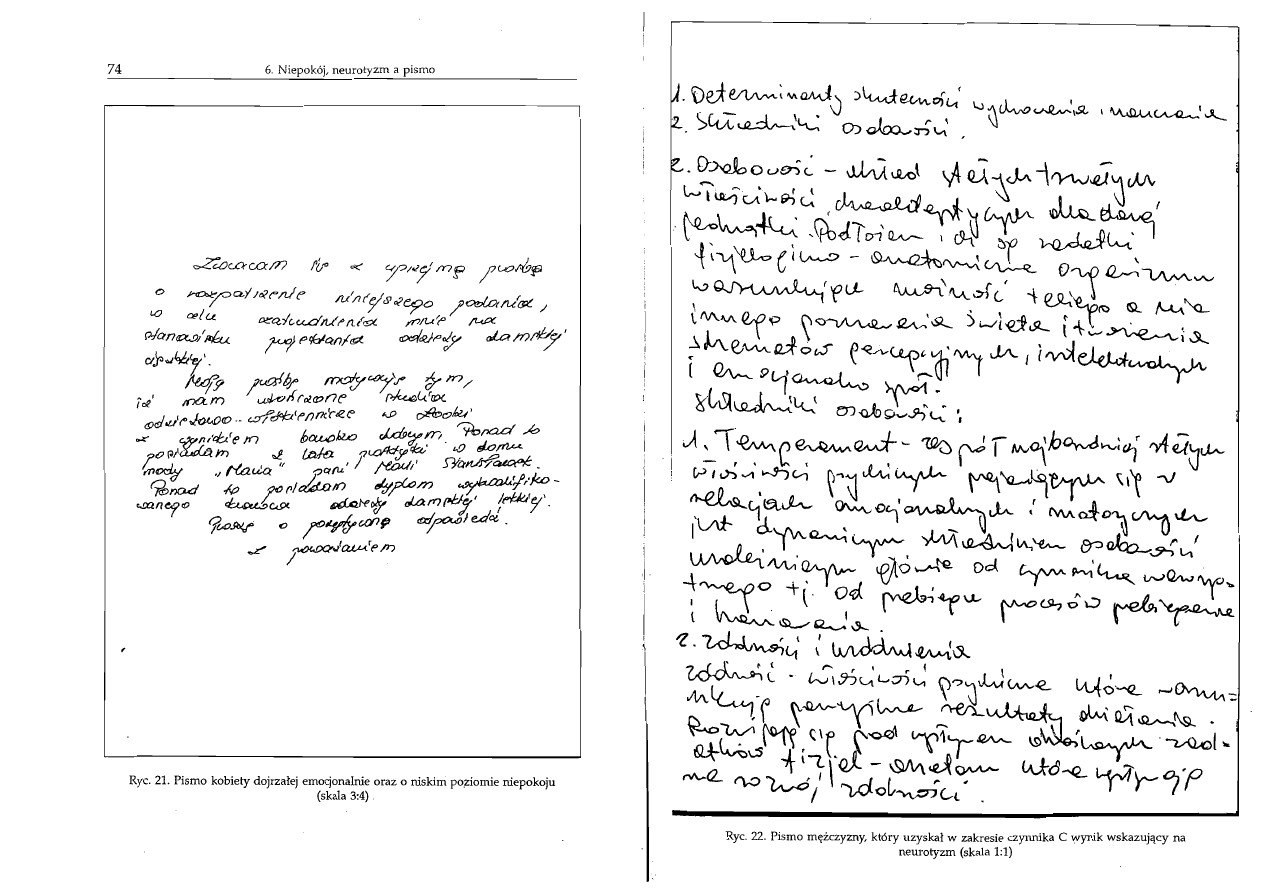 74
6. Niepokój, neurotyzm a pismo
Zwracam się z uprzejmą prośbą
o rozpatrzenie niniejszego podania,
w celu zatrudnienia mnie na
stanowisku projektanta odzieży damskiej
Moją prośbę motywuję tym,
iż mam ukończone studia
odzieżowo-włókiennicze w Łodzi
z wynikiem bardzo dobrym. Ponad to
posiadam 2 lata praktyki w domu
mody „Maria” pani Marii
Ponad to posiadam dyplom wykwalifiko-
wanego krawca odzieży damskiej lekkiej.
Proszę o pozytywną odpowiedź.
z poważaniem
Ryc. 21. Pismo kobiety dojrzałej emocjonalnie oraz o niskim poziomie niepokoju
(skala 3:4)
1. Determinanty skuteczności wychowania i nauczania
2. Składniki osobowości.
2. Osobowość – układ stałych trwałych
właściwości, charakt. dla danej
jednostki. Podłożem są zadatki
fizjologiczno – anatomiczne organizmu
warunkujące możność takiego a nie
innego poznawania świata i tworzenia
schematów percepcyjnych, intelektualnych
i emocjonalno społ.
składniki osobowości:
1. Temperament – zespół najbardziej stałych
właściwości psychicznych przejawiających się w
relacjach emocjonalnych i motorycznych
jest dynamicznym składnikiem osobowości
głównie od
tj. od przebiegu procesów pobudzenia
i hamowania.
2. Zdolności i uzdolnienia
zdolność - właściwości psychiczne które warun=
kują pomyślne rezultaty działania.
Rozwijają się pod wpływem określonych zad-
atków fizjol – anatom które wpływają
na rozwój zdolności.
Ryc. 22. Pismo mężczyzny, który uzyskał w zakresie czynnika C wynik wskazujący na
neurotyzm (skala 1:1)